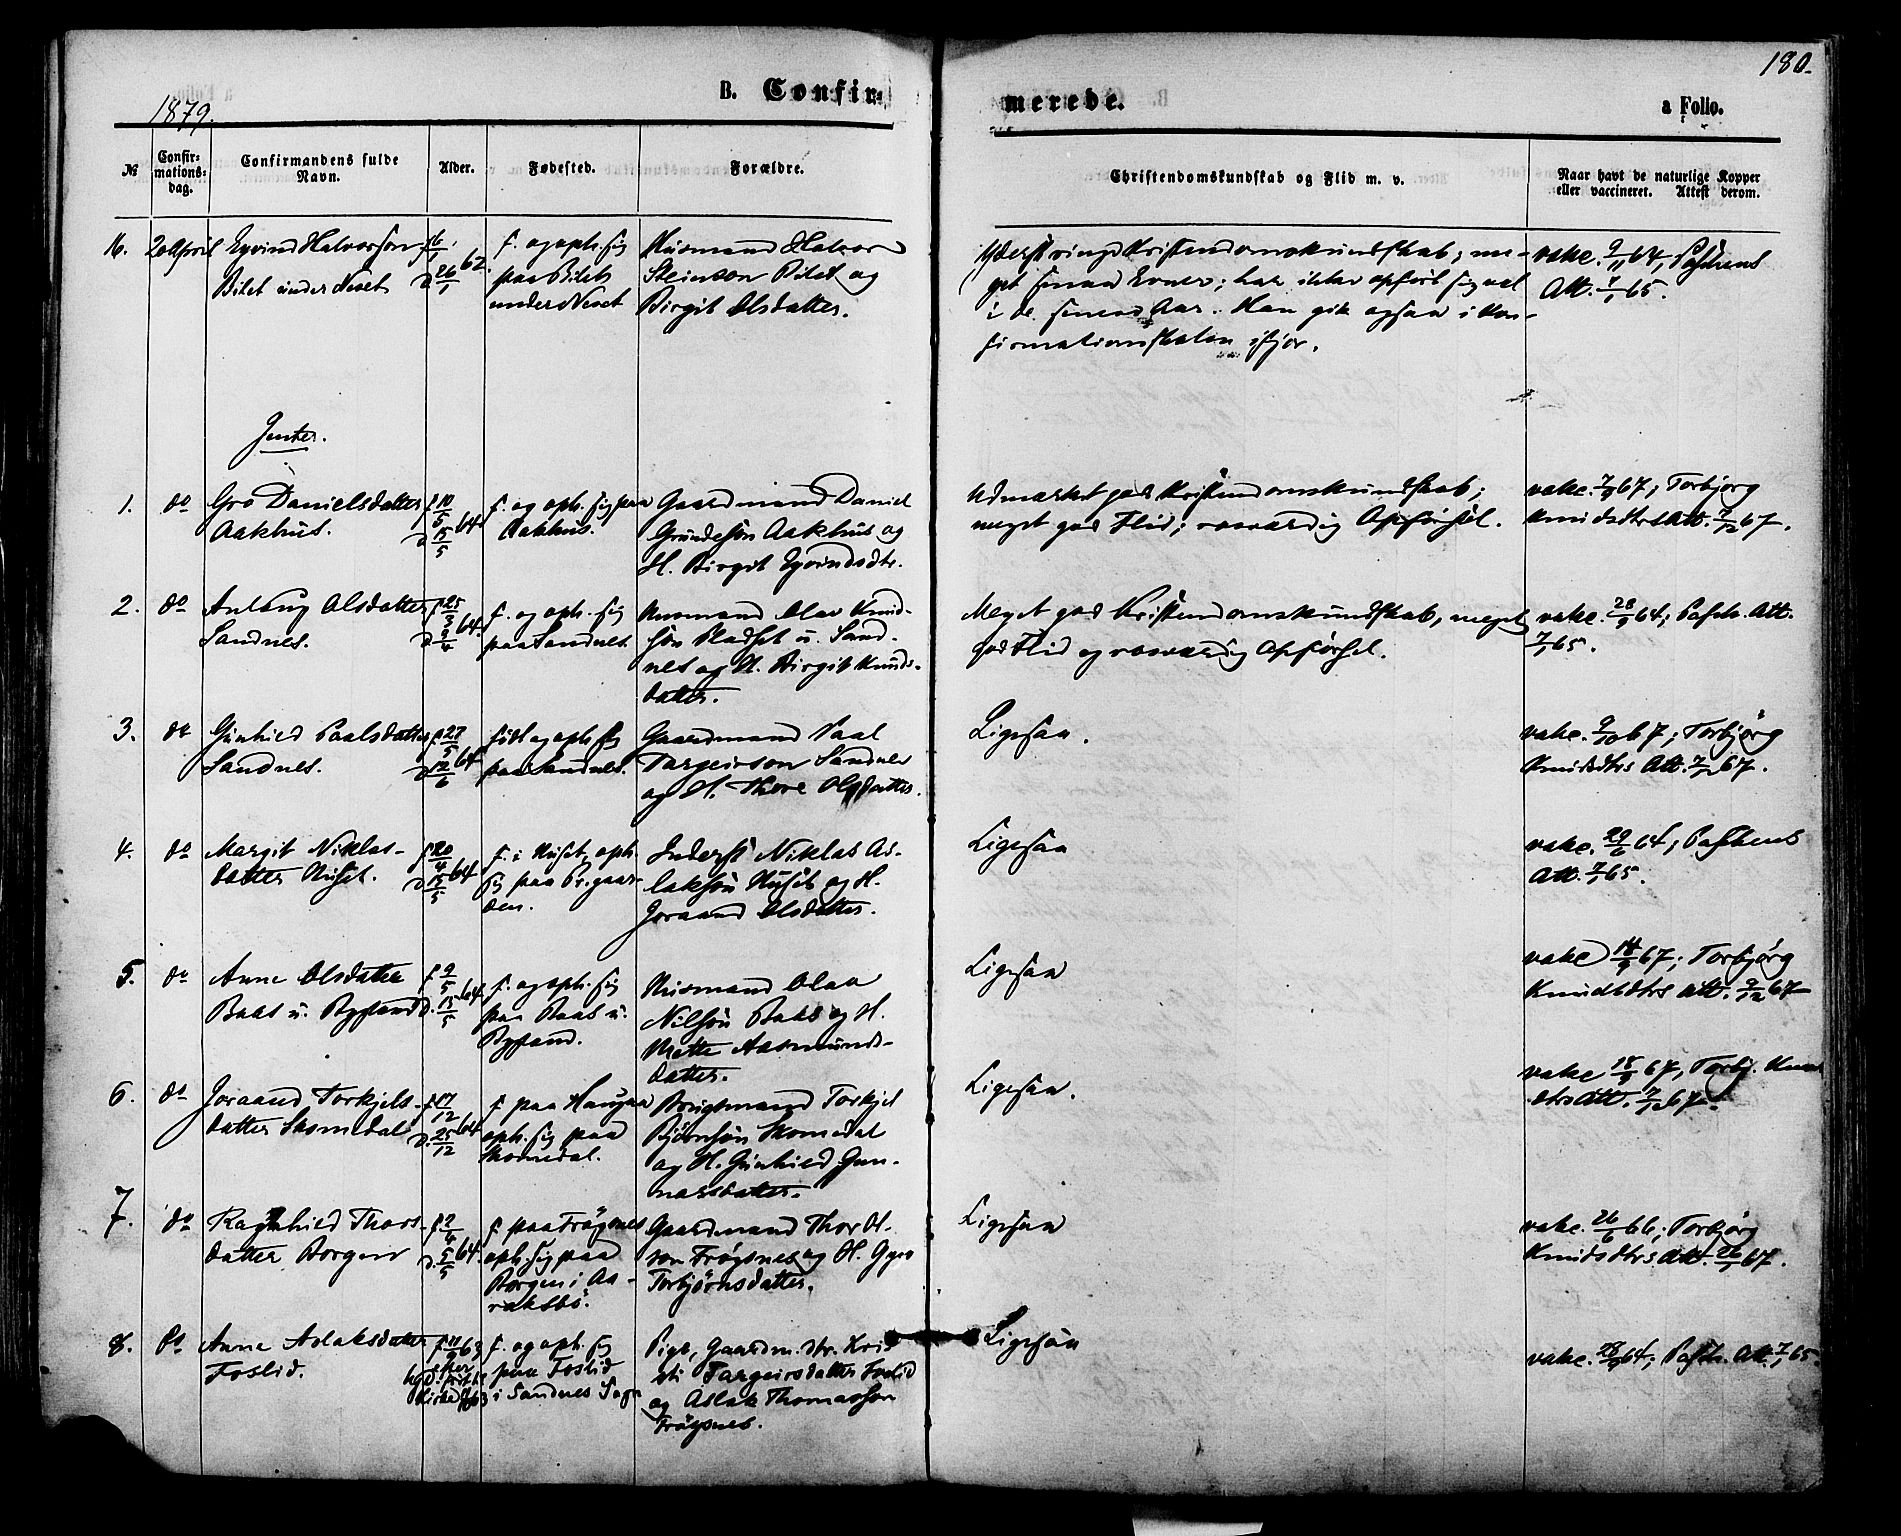 180.
B. Confir=
merede.
a Folio.
1879.
№
Confir=
mations=
dag.
Confirmandens fulde
Navn.
Alder.
Fødested.
Forældre.
Christendomskundskab og Flid m. v.
Naar havt de naturlige Kopper
eller vaccineret. Attest derom.
16. 20 April
Eyvind Halvorson
Bilet under Neset
f. 6/1
d. 26/1 62.
f. og oph. sig
paa Bilet
under Neset
Husmand Halvor
Steinson Bilet og
Birgit Olsdatter.
Yderst ringe Kristendomskundskab; me-
get smaa Evner; har ikke opført sig vel
i de senere Aar. Han gik ogsaa i Kon-
firmationsskolen ifjor.
vakc. 9/11 64, Pasthens
Att. 7/1 65.
Jenter.
1. do
Gro Danielsdatter
Aakhus.
f. 10/5
d. 15/5 64.
f. og oph. sig paa
Aakhus.
Gaardmand Daniel
Grundesön Aakhus og
H. Birgit Eyvindsdtr.
Udmærket god Kristendomskundskab;
meget god Flid; rosværdig Opførsel.
vakc. 7/9 67; Torbjørg
Knudsdtrs Att. 7/12 67.
2. do
Anlaug Olsdatter
Sandnes.
f. 25/3
d. 3/4 64.
f. og oph. sig
paa Sandnes.
Husmand Olav Knud-
sön Pladset u. Sand-
nes og H. Birgit Knuds-
datter.
Meget god Kristendomskundskab, meget
god Flid og rosværdig Opførsel.
vakc. 28/5 64; Pasth. Att.
7/1 65.
3. do
Gunhild Paalsdatter
Sandnes.
f. 27/5
d. 12/6 64
født og oph. sig
paa Sandnes.
Gaardmand Paal
Targeirson Sandnes
og H. Thore Olsdatter.
Ligesaa.
vakc. 9/10 67; Torbjörg
Knudsdtrs Att. 7/12 67.
4. do
Margit Niklas-
datter Huset.
f. 20/4
d. 15/5 64
f. i Huset, oph.
sig paa Pr.gaar-
den.
Inderst Niklas As-
laksön Huset og H.
Joraand Olsdatter.
Ligesaa
vakc. 29/6 64; Pasthens
Att. 7/1 65.
5. do
Anne Olsdatter
Baas u. Bygland
f. 9/5
d. 15/5 64.
f. og oph. sig
paa Baas u.
Bygland.
Husmand Olav
Nilsön Baas og H.
Mette Aasmunds-
datter.
Ligesaa
vakc 14/9 67; Torbjörg
Knudsdtrs Att. 9/12 67
6. do
Joraand Torkjels-
datter Skomedal
f. 17/12
d. 25/12 64
f. paa Haugaa
oph. sig paa
Skomedal.
Brugsmand Torkjel
Bjørnsön Skomedal
og H. Gunhild Gun-
narsdatter.
Ligesaa.
vakc 18/9 67, Torbj. Knu
dtrs Att. 7/12 67.
7. do
Ragnhild Thors-
datter Borgen
f. 2/4
d. 5/5 64.
f. paa Frøgsnes
oph. sig paa
Borgen i Aa-
raksbö.
Gaardmand Thor O.-
son Frøgsnes og H. Gyro
Torbjörnsdatter.
Ligesaa
vakc. 26/6 66; Torbjörg
Knudsdtrs Att. 26/1 67.
8. do
Anne Aslaksdatter
Foslid.
f. og oph. sig
paa Foslid
i Sandnes Sogn
Pige, Gaardm.dtr. Kri-
sti Targeirsdatter Foslid
og Aslak Thomasson
Frøgsnes.
Ligesaa
vakc. 28/9 64; Pasth. Att. 7/1 65.